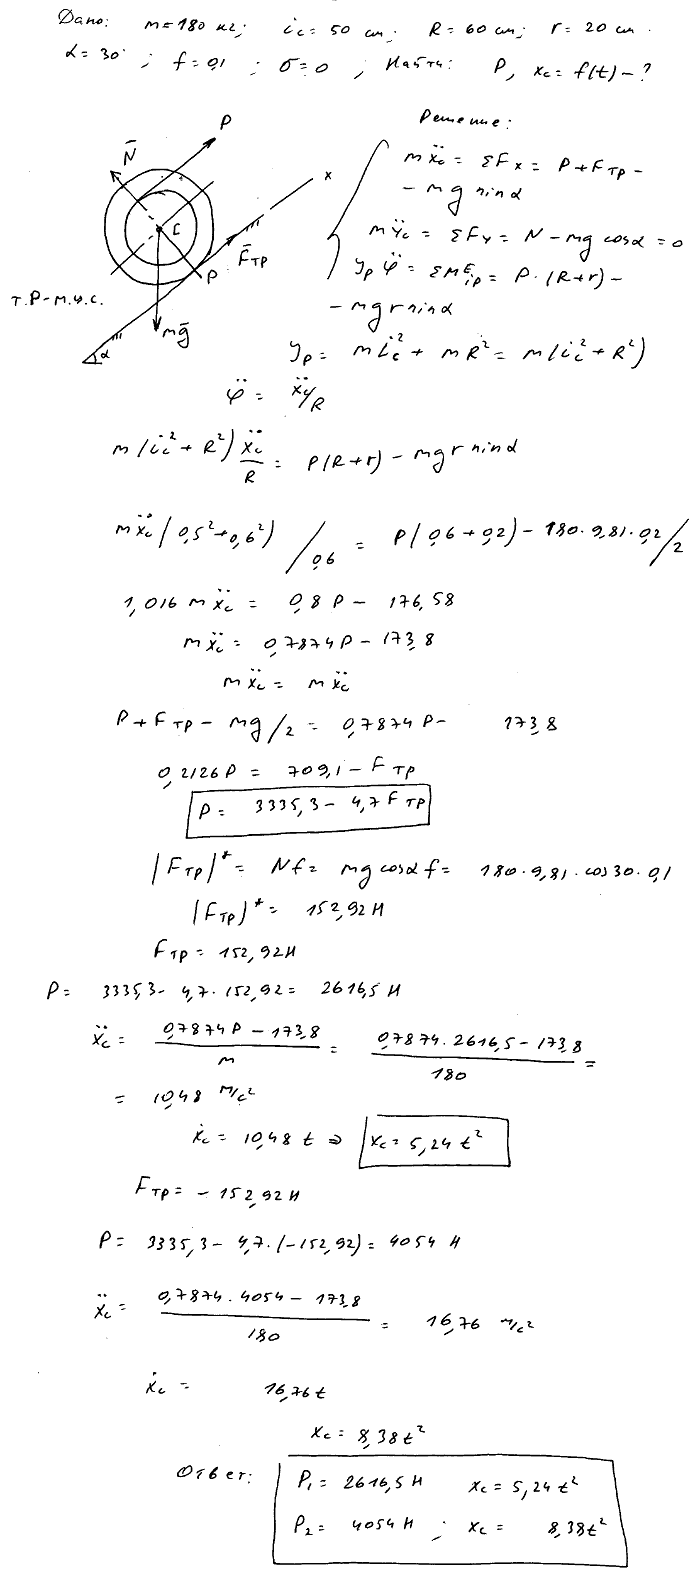 Дано: m = 180 кг; i_c = 50 см; R = 60 см; r = 20 см.
α = 30°; f = 0,1; δ = 0; Найти: P, x_c = f(t) - ?
Решение:
mẍ_c = ΣF_x = P + F_тр -
- mg sinα
mÿ_c = ΣF_y = N - mg cosα = 0
J_p φ̈ = ΣM^E_ip = P·(R+r) -
- mgr sinα
P
N̄
x
C
F̄_тр
P
т.P-м.ц.с.
mḡ
α
J_p = m i_c² + mR² = m(i_c² + R²)
φ̈ = ẍ_c/R
m(i_c² + R²) ẍ_c/R = P(R+r) - mgr sinα
mẍ_c(0,5² + 0,6²)/0,6 = P(0,6 + 0,2) - 180·9,81·0,2/2
1,016 mẍ_c = 0,8P - 176,58
mẍ_c = 0,7874P - 173,8
mẍ_c = mẍ_c
P + F_тр - mg/2 = 0,7874P - 173,8
0,2126P = 709,1 - F_тр
P = 3335,3 - 4,7F_тр
|F_тр|* = Nf = mg cosα f = 180·9,81·cos30·0,1
|F_тр|* = 152,92 Н
F_тр = 152,92 Н
P = 3335,3 - 4,7·152,92 = 2616,5 Н
ẍ_c = (0,7874P - 173,8)/m = (0,7874·2616,5 - 173,8)/180 =
= 10,48 м/с²
ẋ_c = 10,48 t ⇒ x_c = 5,24 t²
F_тр = -152,92 Н
P = 3335,3 - 4,7·(-152,92) = 4054 Н
ẍ_c = (0,7874·4054 - 173,8)/180 = 16,76 м/с²
ẋ_c = 16,76 t
x_c = 8,38 t²
Ответ: P₁ = 2616,5 Н x_c = 5,24 t²
P₂ = 4054 Н; x_c = 8,38 t²